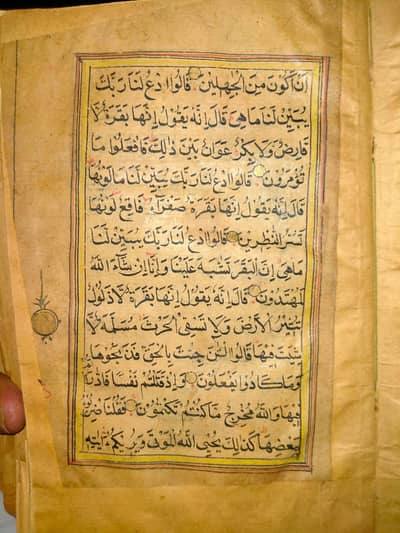 اَنْ اَكُونَ مِنَ الْجٰهِلِينَ قَالُوا ادْعُ لَنَا رَبَّكَ
يُبَيِّنْ لَنَا مَا هِىَ قَالَ اِنَّهُ يَقُولُ اِنَّهَا بَقَرَةٌ لَّا
فَارِضٌ وَلَا بِكْرٌ عَوَانٌ بَيْنَ ذٰلِكَ فَافْعَلُوا مَا
تُؤْمَرُونَ قَالُوا ادْعُ لَنَا رَبَّكَ يُبَيِّنْ لَنَا مَا لَوْنُهَا
قَالَ اِنَّهُ يَقُولُ اِنَّهَا بَقَرَةٌ صَفْرَآءُ فَاقِعٌ لَوْنُهَا
تَسُرُّ النّٰظِرِينَ قَالُوا ادْعُ لَنَا رَبَّكَ يُبَيِّنْ لَنَا
مَا هِىَ اِنَّ الْبَقَرَ تَشٰبَهَ عَلَيْنَا وَاِنَّا اِنْ شَآءَ اللّٰهُ
لَمُهْتَدُونَ قَالَ اِنَّهُ يَقُولُ اِنَّهَا بَقَرَةٌ لَّا ذَلُولٌ
تُثِيْرُ الْاَرْضَ وَلَا تَسْقِى الْحَرْثَ مُسَلَّمَةٌ لَّا
شِيَةَ فِيهَا قَالُوا الْـٰٔنَ جِئْتَ بِالْحَقِّ فَذَبَحُوهَا
وَمَا كَادُوا يَفْعَلُونَ وَاِذْ قَتَلْتُمْ نَفْسًا فَادّٰرَءْتُمْ
فِيهَا وَاللّٰهُ مُخْرِجٌ مَّا كُنْتُمْ تَكْتُمُونَ فَقُلْنَا اضْرِبُوهُ
بِبَعْضِهَا كَذٰلِكَ يُحْىِ اللّٰهُ الْمَوْتٰى وَيُرِيكُمْ اٰيٰتِهٖ